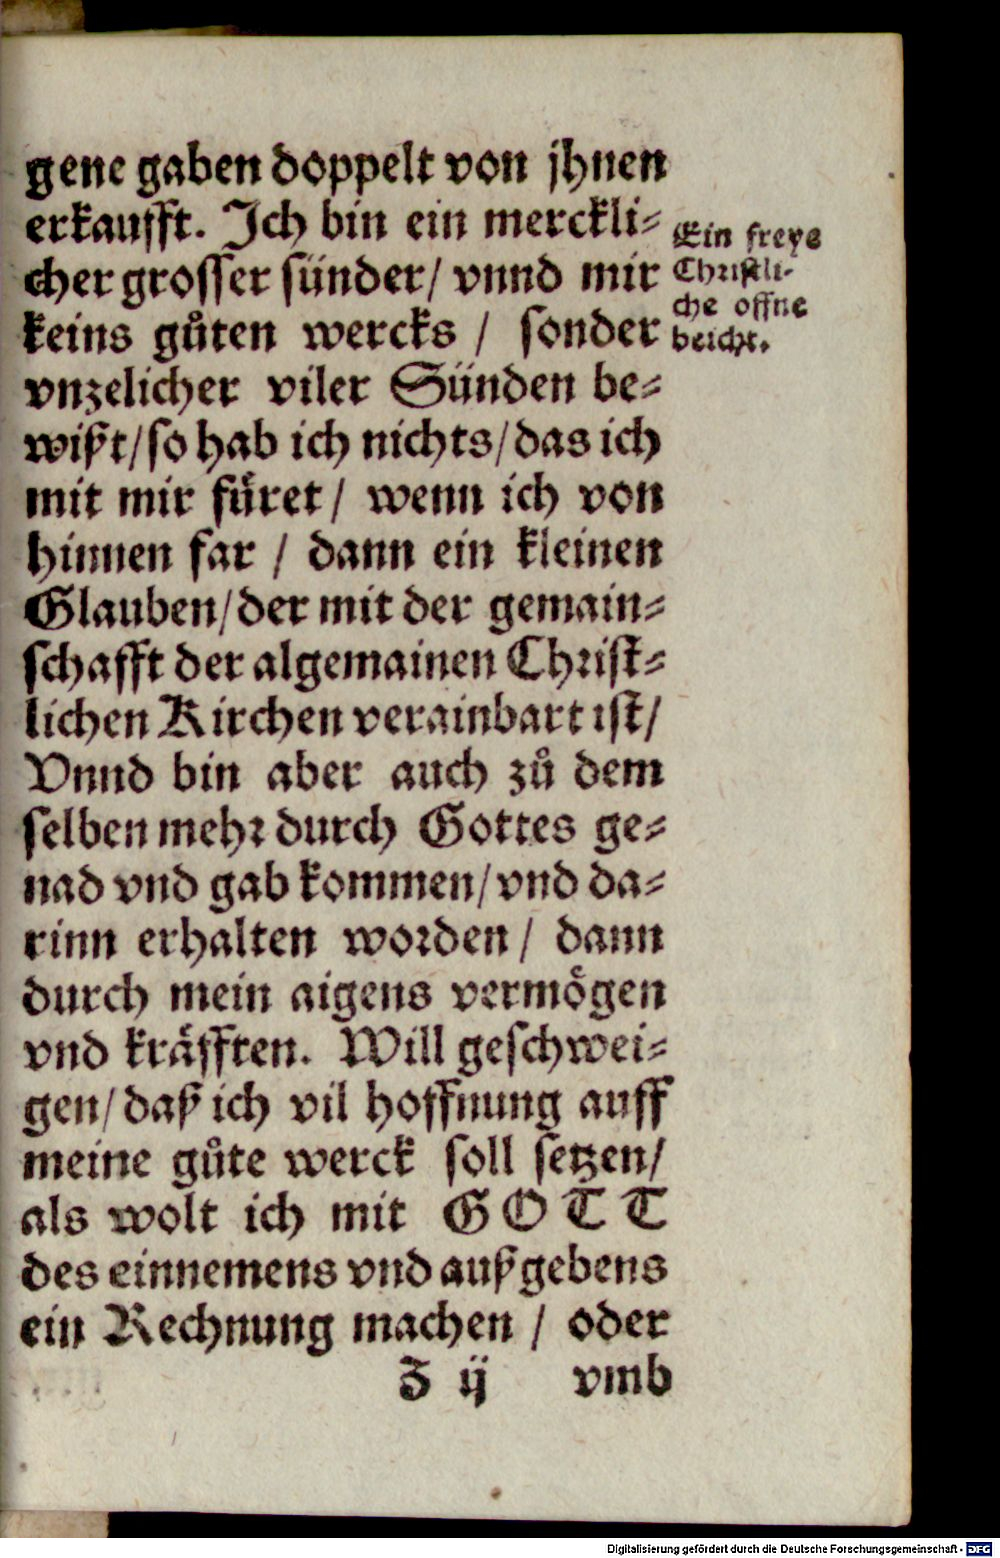 gene gaben doppelt von jhnen
erkaufft. Ich bin ein merckli⸗
cher grosser sünder/ vnnd mir
keins gůten wercks / sonder
vnzelicher viler Sünden be⸗
wißt/so hab ich nichts/das ich
mit mir fůret/ wenn ich von
hinnen far / dann ein kleinen
Glauben/der mit der gemain⸗
schafft der algemainen Christ⸗
lichen Kirchen verainbart ist/
Vnnd bin aber auch zů dem
selben mehr durch Gottes ge⸗
nad vnd gab kommen/vnd da⸗
rinn erhalten worden / dann
durch mein aigens vermögen
vnd kräfften. Will geschwei⸗
gen/daß ich vil hoffnung auff
meine gůte werck soll setzen/
als wolt ich mit GOTT
des einnemens vnd außgebens
ein Rechnung machen / oder
Z ij vmb
Ein freye
Christli-
che offne
beicht.
Digitalisierung gefördert durch die Deutsche Forschungsgemeinschaft - DFG